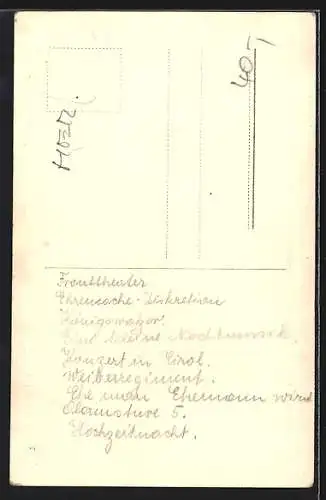 40,-
Fronttheater
Ehrensache - Diskretion
Königswalzer.
Eine kleine Nachtmusik.
Konzert in Tirol.
Weiberregiment.
Ehe man Ehemann wird
Alarmstufe 5.
Hochzeitnacht.